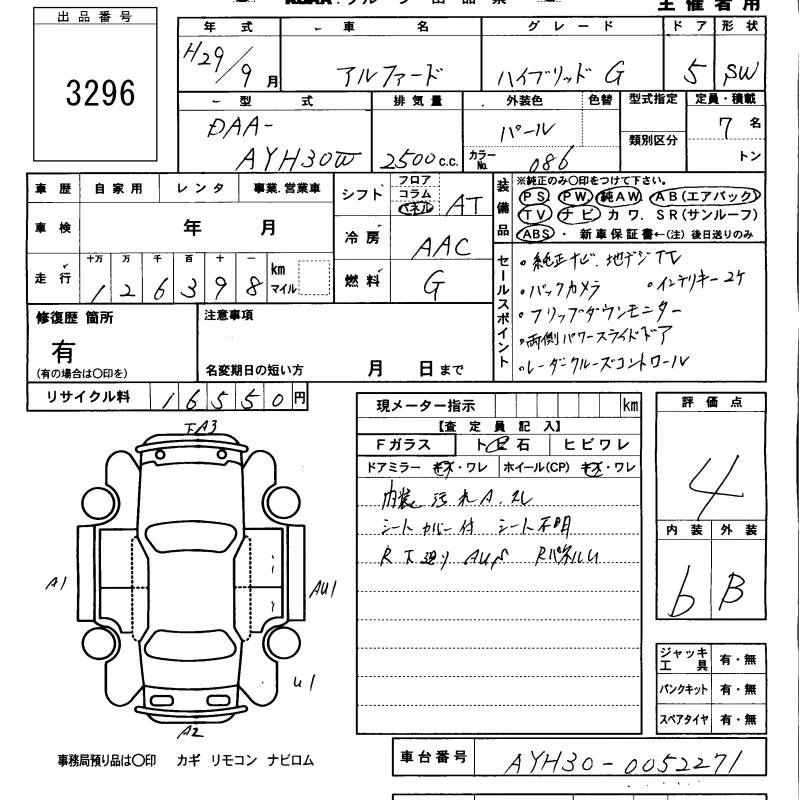 出品番号
3296
主催者用
年式 車名 グレード ドア 形状
H29/9月 アルファード ハイブリッド G 5 SW
型式 排気量 外装色 色替 型式指定 定員・積載
DAA- パール 7名
類別区分
AYH30W 2500c.c. カラーNo. 086 トン
車歴 自家用 レンタ 事業.営業車
車検 年 月
走行 十万 万 千 百 十 一 km マイル
1 2 6 3 9 8
シフト フロア コラム パネル AT
冷房 AAC
燃料 G
装備品 ※純正のみ〇印をつけて下さい。
PS PW 純AW AB(エアバック)
TV ナビ カワ. SR(サンルーフ)
ABS ・ 新車保証書←(注) 後日送りのみ
セールスポイント
・純正ナビ. 地デジTV
・バックカメラ ・インテリキー2ケ
・フリップダウンモニター
・両側パワースライドドア
・レーダークルーズコントロール
修復歴 箇所
有
(有の場合は〇印を)
注意事項
名変期日の短い方 月 日まで
リサイクル料 16550円
現メーター指示 km
【査定員記入】
Fガラス トビ石 ヒビワレ
ドアミラー キズ・ワレ ホイール(CP) キズ・ワレ
内装 汚れA.スレ
シートカバー付 シート不明
R下廻り RパネルU
評価点
4
内装 外装
b B
A3
A1
AU1
U1
A2
ジャッキ工具 有・無
パンクキット 有・無
スペアタイヤ 有・無
事務局預り品は〇印 カギ リモコン ナビロム
車台番号 AYH30-0052271